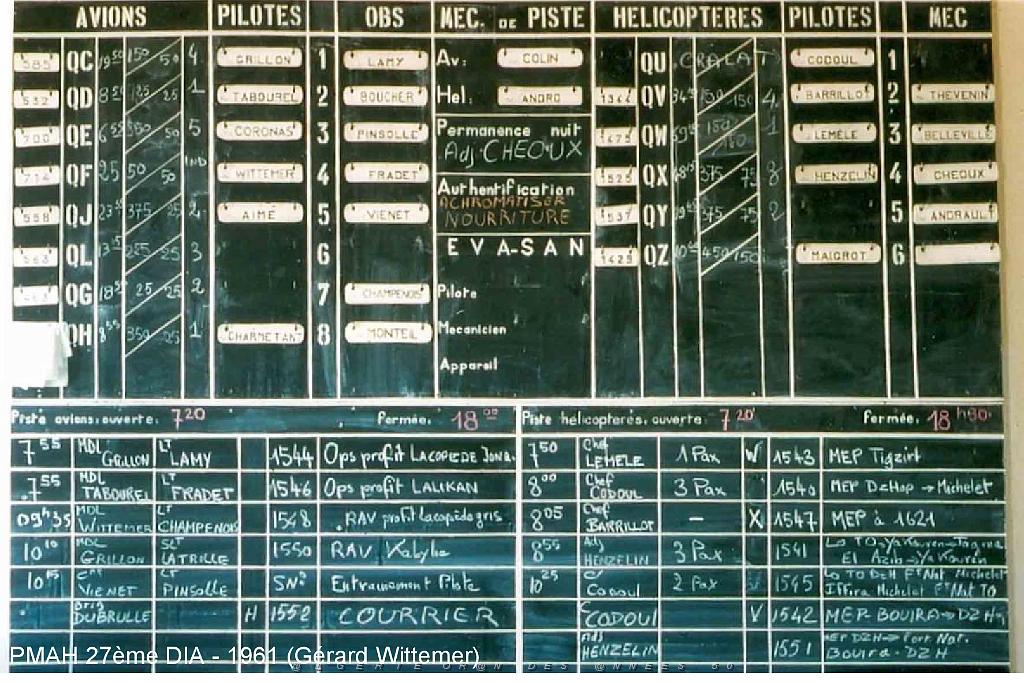 AVIONS PILOTES OBS MEC. DE PISTE HÉLICOPTÈRES PILOTES MEC
585 QC 150 50 4 GRILLON 1 LAMY Av: COLIN QU CRALAT CODOUL 1
532 QD 25 25 1 TABOUREL 2 BOUCHER Hel: ANDRO 1344 QV 150 150 4 BARRILLOT 2 THEVENIN
700 QE 350 50 5 CORONAS 3 PINSOLLE Permanence nuit 1475 QW 150 1 LEMÈLE 3 BELLEVILLE
Adj CHEOUX
714 QF 25 50 50 IND WITTEMER 4 FRADET Authentification 1525 QX 375 75 8 HENZELIN 4 CHEOUX
ACHROMATISER
558 QJ 375 25 2 AIMÉ 5 VIENET NOURRITURE 1537 QY 375 75 2 5 ANDRAULT
563 QL 225 25 3 6 EVA-SAN 1425 QZ 450 150 MAIGROT 6
QG 25 25 2 7 CHAMPENOIS Pilote
QH 8 55 350 25 1 CHARMETANT 8 MONTEIL Mecanicien
Appareil
Piste avions: ouverte: 7 20 fermée. 18 00 Piste hélicoptères. ouverte: 7 20 fermée. 18 h30
7 55 MDL GRILLON LT LAMY 1544 Ops profit 7 50 Chef LEMELE 1 Pax W 1543 MEP Tigzirt
7 55 MDL TABOUREL LT FRADET 1546 Ops profit LALIKAN 8 00 Chef CODOUL 3 Pax 1540 MEP DzHop → Michelet
09h35 MDL WITTEMER LT CHAMPENOIS 1548 RAV profit Lacopède gris 8 05 Chef BARRILLOT — X 1547 MEP à 1621
10 10 MDL GRILLON SLT LATRILLE 1550 RAV Kabylie 8 55 Adj HENZELIN 3 Pax 1541 Lo TO → Yakouren → Tagma
El Azib → Yakouren
10 15 VIENET LT PINSOLLE SN° Entrainement Pilote 10 25 C/ CODOUL 2 Pax 1545 Lo TO DzH Ft Nat Michelet
Iffira Michelet Ft Nat TO
Brig DUBRULLE H 1552 COURRIER C CODOUL V 1542 MEP BOUIRA → DZH
Adj HENZELIN 1551 MEP DZH → Fort Nat.
Bouira - DZH
PMAH 27ème DIA - 1961 (Gérard Wittemer)